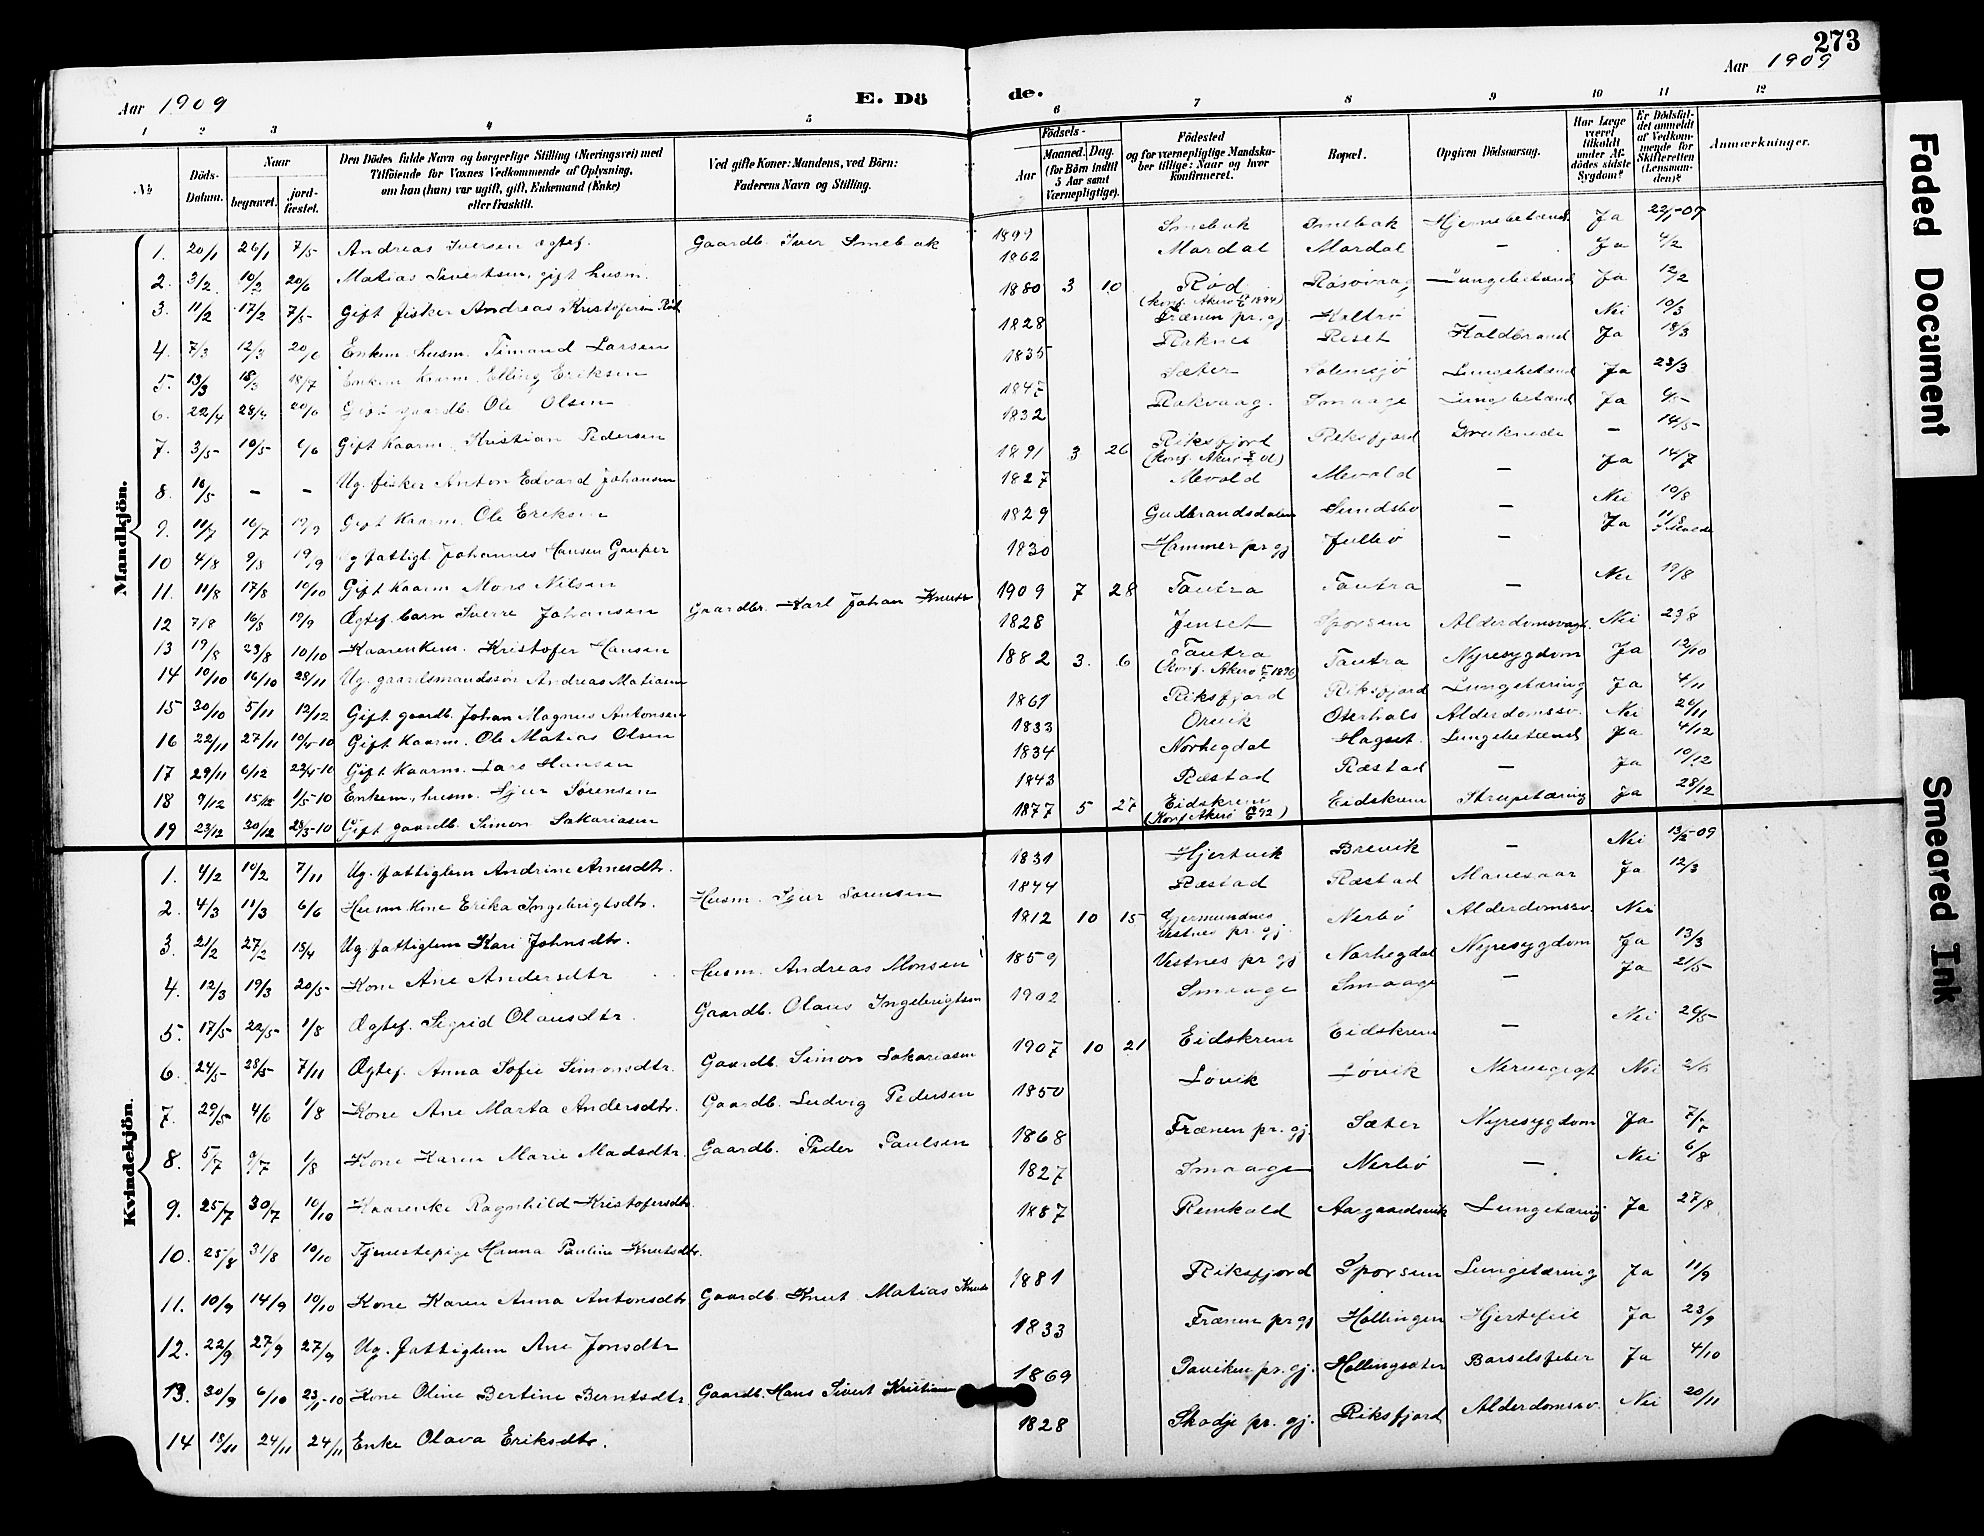 273
Aar 1909
E. Dö
de.
Aar 1909
1 2 3 4 5 6 7 8 9 10 11 12
№
Döds-Datum.
Naar
begravet.
jord-fæstet.
Den Dödes fulde Navn og borgerlige Stilling (Næringsvei) med
Tilföiende for Voxnes Vedkommende af Oplysning,
om han (hun) var ugift, gift, Enkemand (Enke)
eller fraskilt.
Ved gifte Koner: Mandens, ved Börn:
Faderens Navn og Stilling.
Födsels-
Aar
Maaned. Dag.
(for Börn indtil
5 Aar samt
Værnepligtige).
Födested
og for værnepligtige Mandska-
ber tillige: Naar og hvor
konfirmeret.
Bopæl.
Opgiven Dödsaarsag.
Har Læge
været
tilkaldt
under Af-
dödes sidste
Sygdom?
Er Dödsfal-
det anmeldt
af Vedkom-
mende for
Skifteretten
(Lensman-
den)?
Anmærkninger.
Mandkjön.
1. 20/1 26/1 7/5 Andreas Iversen ægtef. Gaardb. Iver Smebak 1899 Smebak Smebak Ja 22/1-09
2. 3/2 10/2 20/6 Matias Sivertsen, gift husm. 1862 Mardal Mardal — Ja 4/2
3. 11/2 17/2 7/5 Gift fisker Andreas Kristofersen Röd 1880 3 10 Rød Lungebetænd Ja 12/2
4. 7/3 12/3 20/6 Enkem. husm. Timand Larsen 1828 Frænen pr. gj. — Nei 10/3
5. 13/3 18/3 18/7 Enkem. Kaarm. Elling Eriksen 1835 Raknes Riset Koldbrand Ja 18/3
6. 22/4 28/4 20/6 Gift gaardb. Ole Olsen 1847 Sæter Lungebetænd Ja
7. 3/5 10/5 6/6 Gift Kaarm. Kristian Pedersen 1832 Rakvaag. Smaage Lungebetænd Ja
8. 10/5 — — Ug. fisker Anton Edvard Johansen 1891 3 26 Riksfjord Riksfjord Druknede — 14/5
9. 11/7 16/7 19/9 Gift Kaarm. Ole Eriksen 1827 Mevold Mevold — Ja 14/7
10 4/8 9/8 19/9 Ug fattigl. Johannes Hansen Gauper 1829 Gudbrandsdalen Sundsbö — Nei 10/8
11. 11/8 17/8 10/10 Gift Kaarm Mons Nilsen 1830 Hammer pr gj Julbö — Ja 11/8
12 7/8 16/8 19/9 Ægtef. barn Sverre Johansen Gaardbr. Karl Johan Knuts 1909 7 28 Tautra Tautra — Nei 19/8
13 19/8 23/8 10/10 Kaarenkem. Kristofer Hansen 1828 Jenset Sporsem Alderdomsvagh. Nei 23/8
14 10/10 16/10 28/11 Ug. gaardmandssøn Andreas Matiasen 1882 3. 6 Tautra Tautra Nyresygdom Ja 12/10
15 30/10 5/11 12/12 Gift gaardb. Johan Magnus Antonsen 1861 Riksfjord Riksfjord Lungetæring Ja 4/11
16 22/11 27/11 10/4-10 Gift Kaarm. Ole Matias Olsen 1833 Orvik Oterhals Alderdomssv. Nei 26/11
17 29/11 6/12 22/4-10 Gift Kaarm. Lars Hansen 1834 Norhegdal Hagset. Lungebetænd Ja 4/12
18 9/12 15/12 1/5-10 Enkem., husm. Sjur Sørensen 1843 Ræstad Ræstad — Ja 10/12
19 23/12 30/12 28/3-10 Gift gaardb. Simon Sakariasen 1877 5 27 Eidskrem (Konf Akerö 92) Eidskrem Strupetæring Ja 28/12
Kvindekjön.
1. 4/2 10/2 7/11 Ug. fattiglem Andrine Arnesdtr. 1831 Hjertvik Brevik — Nei 13/2-09
2. 4/3 11/3 6/6 Husm.Kone Erika Ingebrigtsdtr. Husm. Sjur Sørensen 1844 Ræstad Ræstad Mavesaar Ja 12/3
3. 21/2 27/2 15/4 Ug. fattiglem Kari Johnsdtr. 1812 10 15 Gjermundnes Vestnes pr. gj. Nerbö Alderdomssv. Nei
4. 12/3 19/3 20/5 Kone Ane Andersdtr Husm. Andreas Monsen 1859 Vestnes pr gj Norhegdal Nyresygdom Ja 13/3
5. 17/5 22/5 1/8 Ægtef. Sigrid Olausdtr. Gaardb. Olaus Ingebrigtsen 1902 Smaage Smaage — Ja 21/5
6. 24/5 28/5 7/11 Ægtef. Anna Sofie Simonsdtr. Gaardb. Simon Sakariasen 1907 10 21 Eidskrem Eidskrem — Nei 26/5
7. 29/5 4/6 1/8 Kone Ane Marta Andersdtr. Gaardb. Ludvig Pedersen 1850 Løvik Løvik Nervegigt Nei 2/6
8. 5/7 9/7 1/8 Kone Karen Marie Madsdtr. Gaardb. Peder Paulsen 1868 Frænen pr. gj. Sæter Nyresygdom Ja
9. 25/7 30/7 10/10 Kaarenke Ragnhild Kristofersdtr. 1827 Smaage Nerbö — Nei 6/8
10. 25/8 31/8 10/10 Tjenestepige Hanna Pauline Knutsdtr. 1887 Remkold Aargaardsvik Lungetæring Ja 27/8
11. 10/9 14/9 10/10 Kone Karen Anna Antonsdtr Gaardb. Knut Matias Knuts 1881 Riksfjord Sporsem Lungetæring Ja 11/9
12. 22/9 27/9 27/9 Ug. fattiglem Ane Jonsdtr 1833 Frænen pr gj Hollingen Hjertefeil Ja 23/9
13. 30/9 6/10 23/1-10 Kone Oline Bertine Berntsdtr. Gaardb. Hans Sivert Kristian 1869 pr. gj. Hollingsæter Barselsfeber Ja 4/10
14 18/11 24/11 24/11 Enke Olava Eriksdtr. 1828 Skodje pr. gj. Riksfjord Alderdomssv. Nei 20/11
Faded Document
Smeared Ink